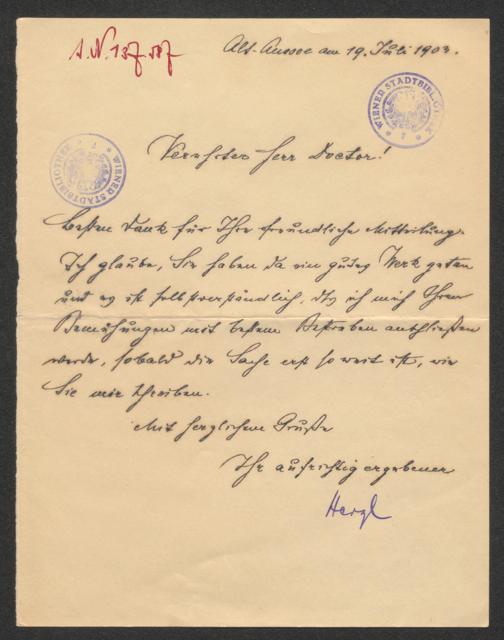 J.N. 137.587
Alt-Aussee am 19. Juli 1903.
WIENER STADTBIBLIOTHEK
WIENER STADTBIBLIOTHEK
Verehrter Herr Doctor!
besten Dank für Ihre freundliche Mitteilung.
Ich glaube, Sie haben da ein gutes Werk getan
und es ist selbstverständlich, dß ich mich Ihren
Bemühungen mit bestem Bestreben anschließen
werde, sobald die Sache erst so weit ist, wie
Sie mir schreiben.
Mit herzlichem Gruße
Ihr aufrichtig ergebener